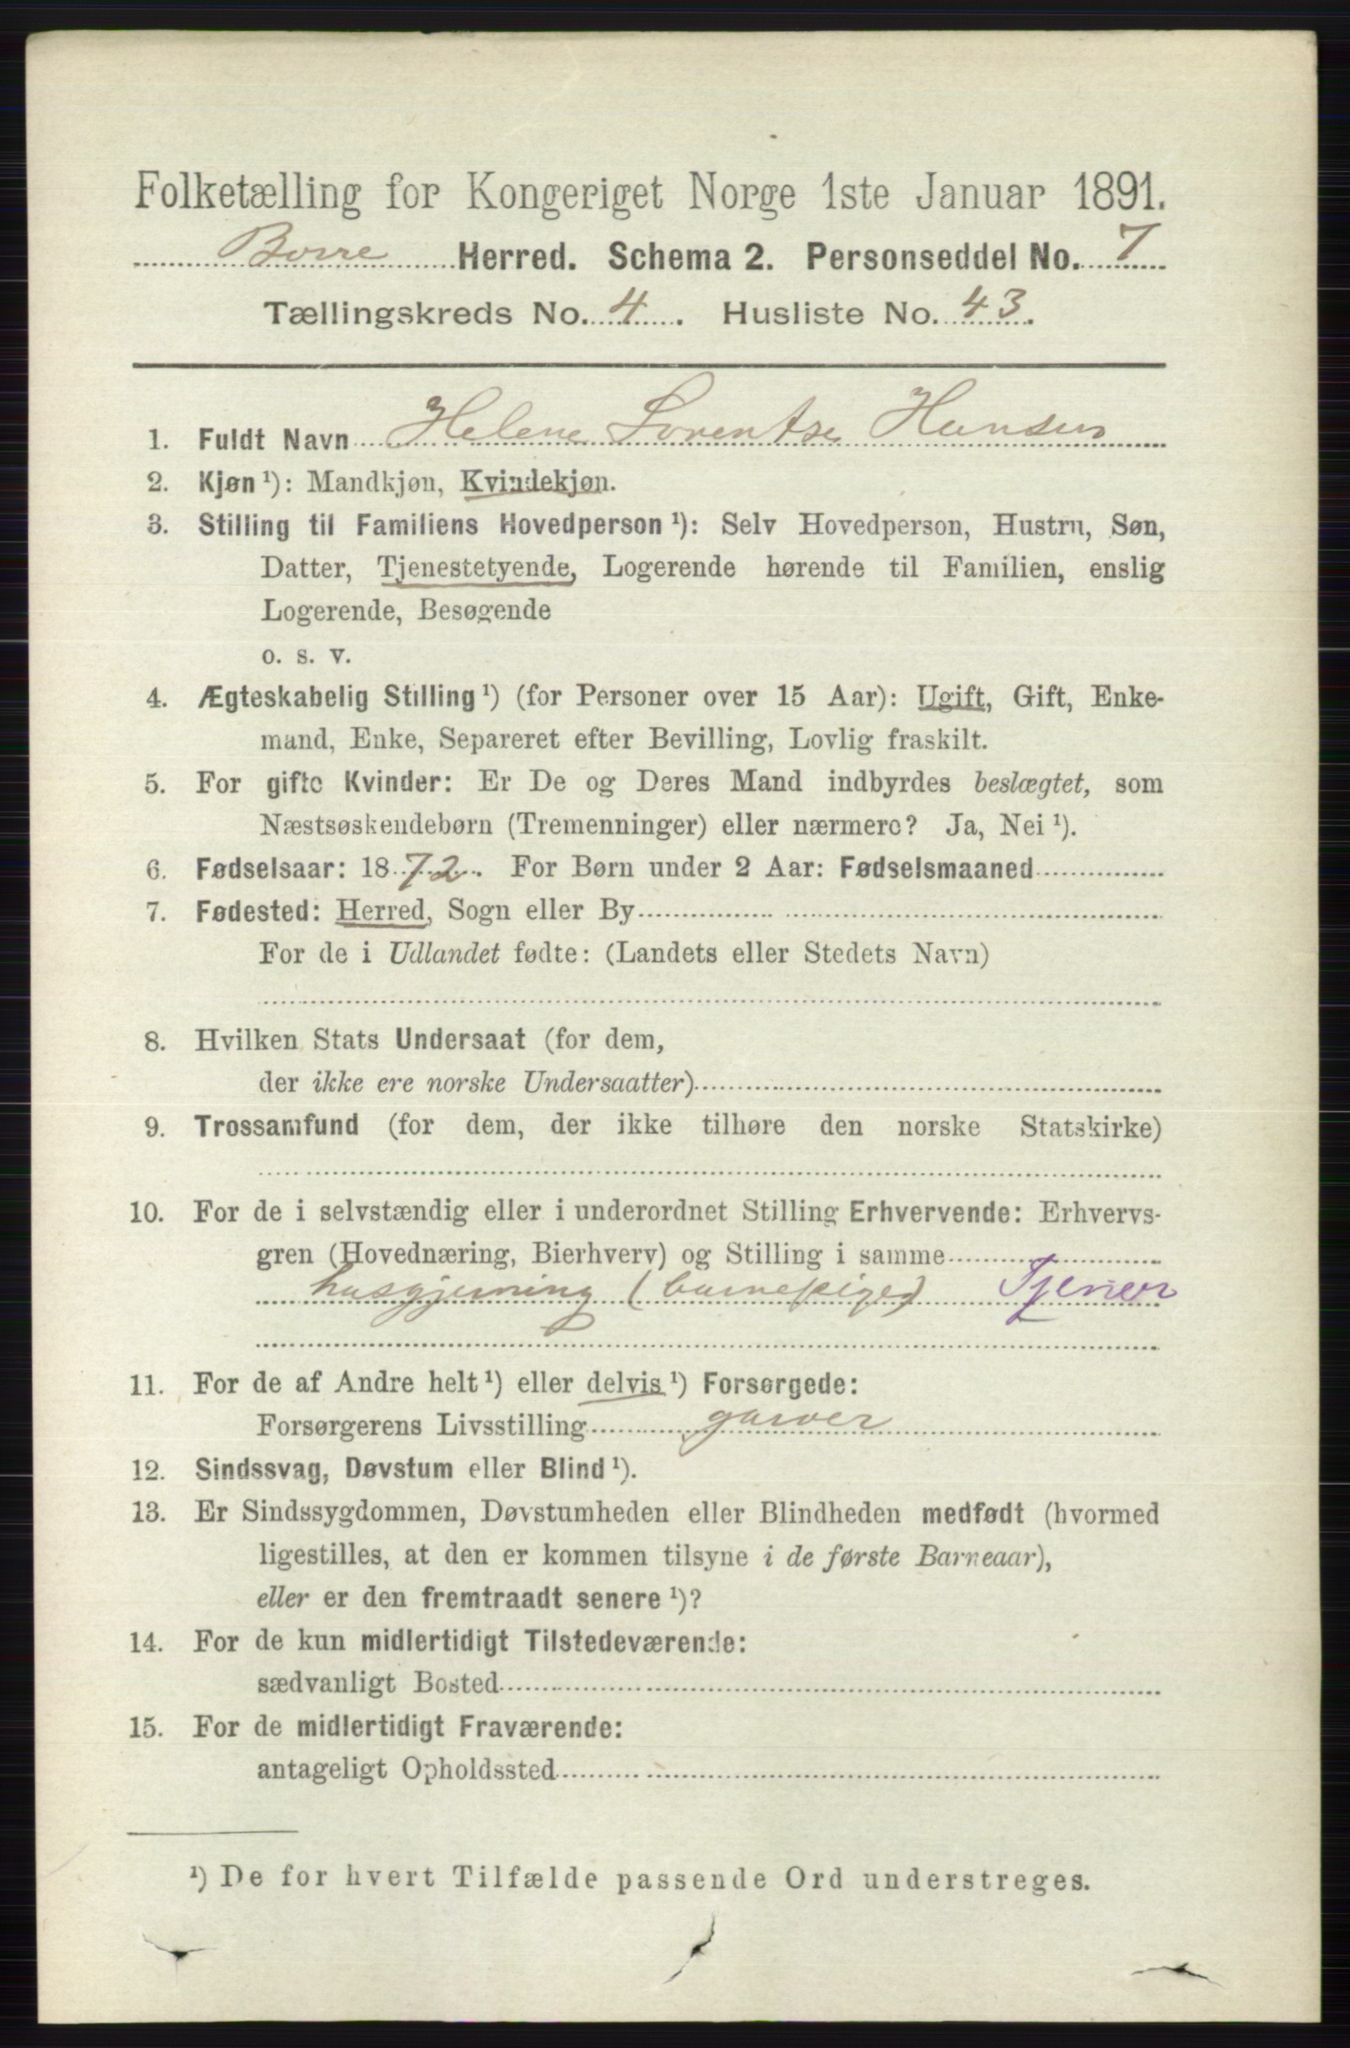 Folketælling for Kongeriget Norge 1ste Januar 1891.
Borre Herred. Schema 2. Personseddel No. 7
Tællingskreds No. 4. Husliste No. 43.
1. Fuldt Navn Helene Lorentse Hansen
2. Kjøn ¹): Mandkjøn, Kvindekjøn.
3. Stilling til Familiens Hovedperson ¹): Selv Hovedperson, Hustru, Søn,
Datter, Tjenestetyende, Logerende hørende til Familien, enslig
Logerende, Besøgende
o. s. v.
4. Ægteskabelig Stilling ¹) (for Personer over 15 Aar): Ugift, Gift, Enke-
mand, Enke, Separeret efter Bevilling, Lovlig fraskilt.
5. For gifte Kvinder: Er De og Deres Mand indbyrdes beslægtet, som
Næstsøskendebørn (Tremenninger) eller nærmere? Ja, Nei ¹).
6. Fødselsaar: 1872. For Børn under 2 Aar: Fødselsmaaned
7. Fødested: Herred, Sogn eller By
For de i Udlandet fødte: (Landets eller Stedets Navn)
8. Hvilken Stats Undersaat (for dem,
der ikke ere norske Undersaatter)
9. Trossamfund (for dem, der ikke tilhøre den norske Statskirke)
10. For de i selvstændig eller i underordnet Stilling Erhvervende: Erhvervs-
gren (Hovednæring, Bierhverv) og Stilling i samme
husgjerning (barnepige) Tjener
11. For de af Andre helt ¹) eller delvis ¹) Forsørgede:
Forsørgerens Livsstilling garver
12. Sindssvag, Døvstum eller Blind ¹).
13. Er Sindssygdommen, Døvstumheden eller Blindheden medfødt (hvormed
ligestilles, at den er kommen tilsyne i de første Barneaar),
eller er den fremtraadt senere ¹)?
14. For de kun midlertidigt Tilstedeværende:
sædvanligt Bosted
15. For de midlertidigt Fraværende:
antageligt Opholdssted
¹) De for hvert Tilfælde passende Ord understreges.